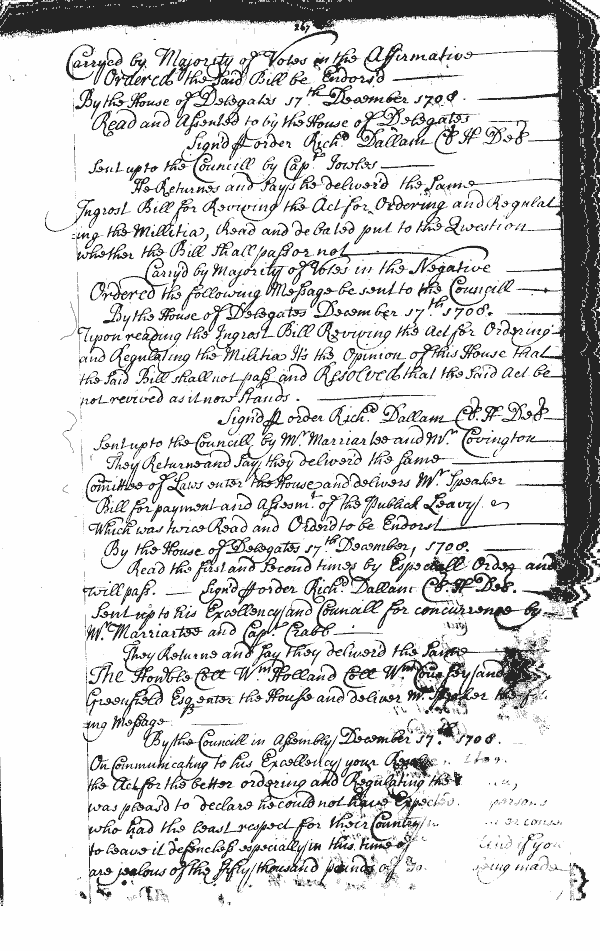 267
Carryed by Majority of Votes in the Affirmative
Ordered the said Bill be Endorsd
By the House of Delegates 17th December 1708.
Read and Assented to by the House of Delegates
Signd order Richd Dallam Cl H Del
Sent up to the Councill by Capt Jowles
He Returnes and Says he deliverd the same
Ingrost Bill for Reviving the Act for Ordering and Regulat
ing the Millitia, Read and debated put to the Question
whether the Bill shall pass or not
Carryd by Majority of Votes in the Negative
Ordered the following Message be sent to the Councill
By the House of Delegates December 17th 1708.
Upon reading the Ingrost Bill Reviving the Act for Ordering
and Regulating the Militia Its the Opinion of this House that
the said Bill shall not pass and Resolved that the said Act be
not revived as it now stands.
Signd order Richd Dallam Cl H Del
Sent up to the Councill by Mr Marriartee and Mr Covington
They Returne and Say they deliverd the same
Comittee of Laws enter the House and delivers Mr Speaker
Bill for payment and Assesmt of the Publick Leavy
Which was twice Read and Orderd to be Endorst
By the House of Delegates 17th December, 1708.
Read the first and Second times by Especiall Order and
will pass. Signd order Richd Dallam Cl H Del.
Sent up to his Excellency and Councill for concurrence by
Mr Marriartee and Capt Crabb
They Returne and say they deliverd the Same
The Honble Coll Wm Holland Coll Wm Coursey and
Greenfield Esqr enter the House and deliver Mr Speaker the
ing Message
By the Councill in Assembly December 17th 1708.
On Communicating to his Excellency your
the Act for the better ordering and Regulating the
was pleasd to declare he could not have Expected persons
who had the least respect for their Country
to leave it defenceless especially in this time of and if you
are jealous of the fifty thousand pounds of being made